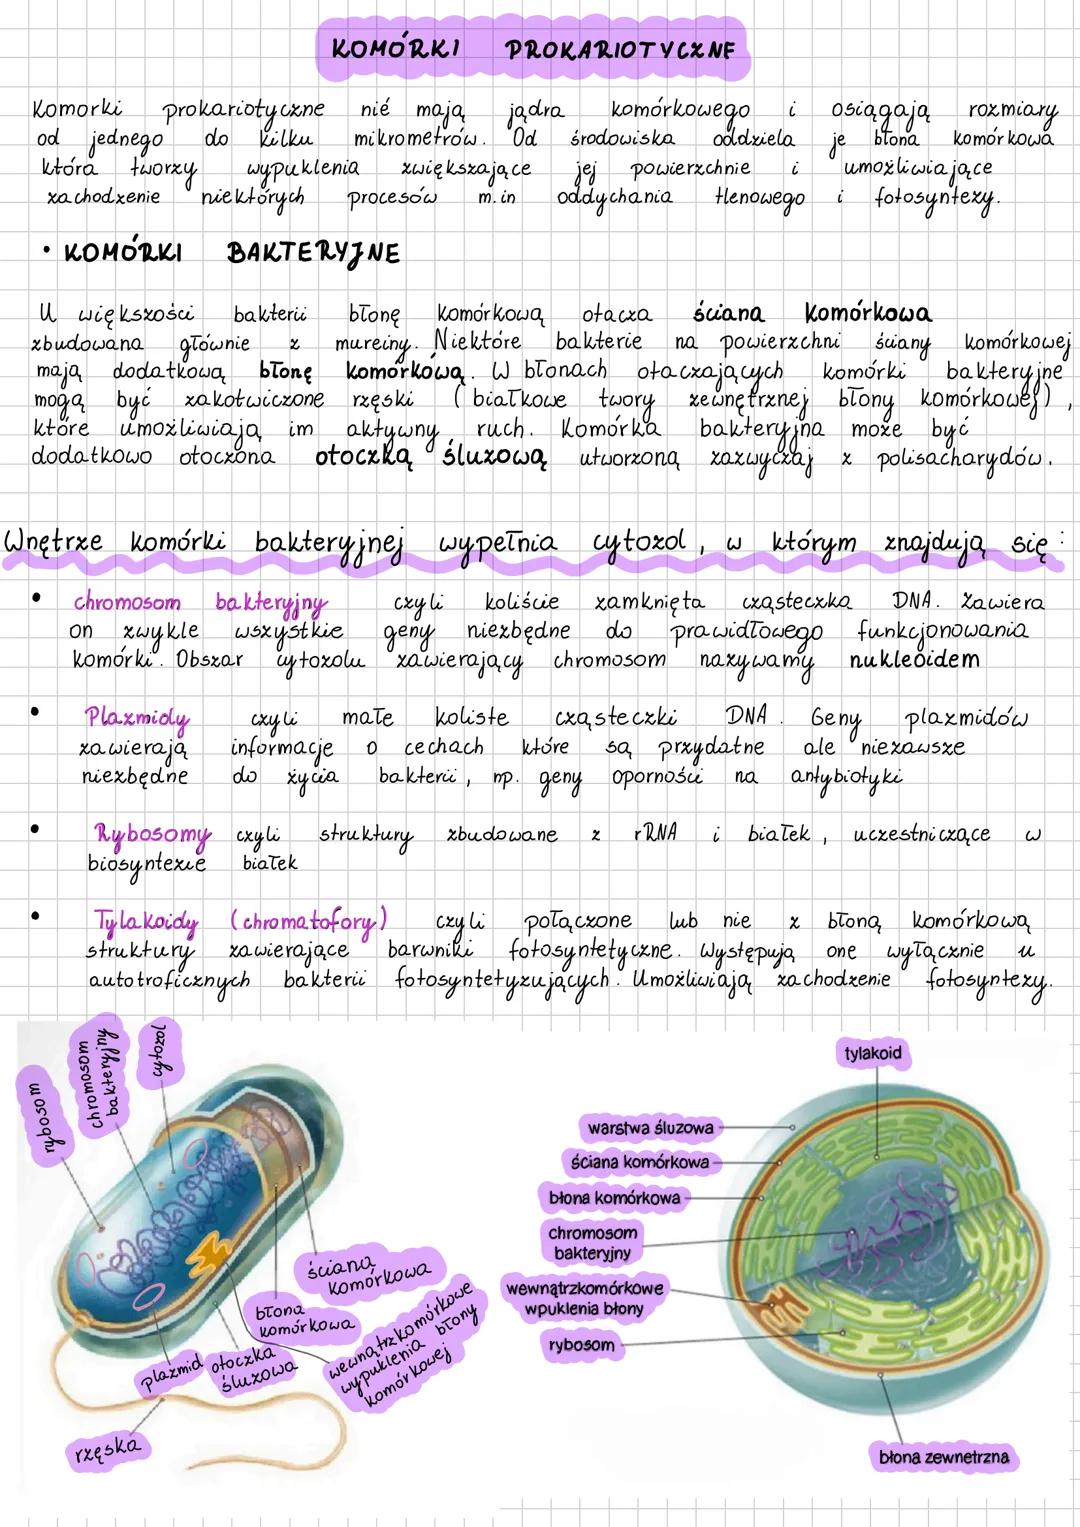 KOMÓRKI PROKARIOTYCZNE
Komorki prokariotyczne nié mają jądra komórkowego i osiągają rozmiary
od jednego do kilku mikrometrów. Od środowiska oddziela je błona komórkowa
która tworzy wypuklenia zwiększające jej powierzchnie i umożliwiające
zachodzenie niektórych procesów m.in oddychania tlenowego i fotosyntezy.
• KOMÓRKI BAKTERYJNE
U większości bakterii błonę komórkową otacza ściana komórkowa
zbudowana głównie z mureiny. Niektóre bakterie na powierzchni ściany komórkowej
mają dodatkową błonę komórkową. W błonach otaczających komórki bakteryjne
mogą być zakotwiczone rzęski (białkowe twory zewnętrznej błony komórkowej),
które umożliwiają im aktywny ruch. Komórka bakteryjna może być
dodatkowo otoczona otoczką śluzową utworzoną zazwyczaj z polisacharydów.
Wnętrze komórki bakteryjnej wypełnia cytozol, w którym znajdują się:
• chromosom bakteryjny czyli koliście zamknięta cząsteczka DNA. Zawiera
on zwykle wszystkie geny niezbędne do prawidłowego funkcjonowania
komórki. Obszar cytozolu zawierający chromosom nazywamy nukleoidem
• Plazmidy czyli małe koliste cząsteczki DNA. Geny plazmidów
zawierają informacje o cechach które są przydatne ale niezawsze
niezbędne do życia bakterii, np. geny oporności na antybiotyki
• Rybosomy czyli struktury zbudowane z rRNA i białek, uczestniczące w
biosyntezie białek
• Tylakoidy (chromatofory) czyli połączone lub nie z błoną komórkową
struktury zawierające barwniki fotosyntetyczne. Występują one wyłącznie u
autotroficznych bakterii fotosyntetyzujących. Umożliwiają zachodzenie fotosyntezy.
rybosom
chromosom
bakteryjny
cytozol
ściana
komórkowa
błona
komórkowa
wewnątrzkomórkowe
wypuklenia błony
komórkowej
otoczka
śluzowa
plazmid
rzęska
tylakoid
warstwa śluzowa
ściana komórkowa
błona komórkowa
chromosom
bakteryjny
wewnątrzkomórkowe
wpuklenia błony
rybosom
błona zewnetrzna